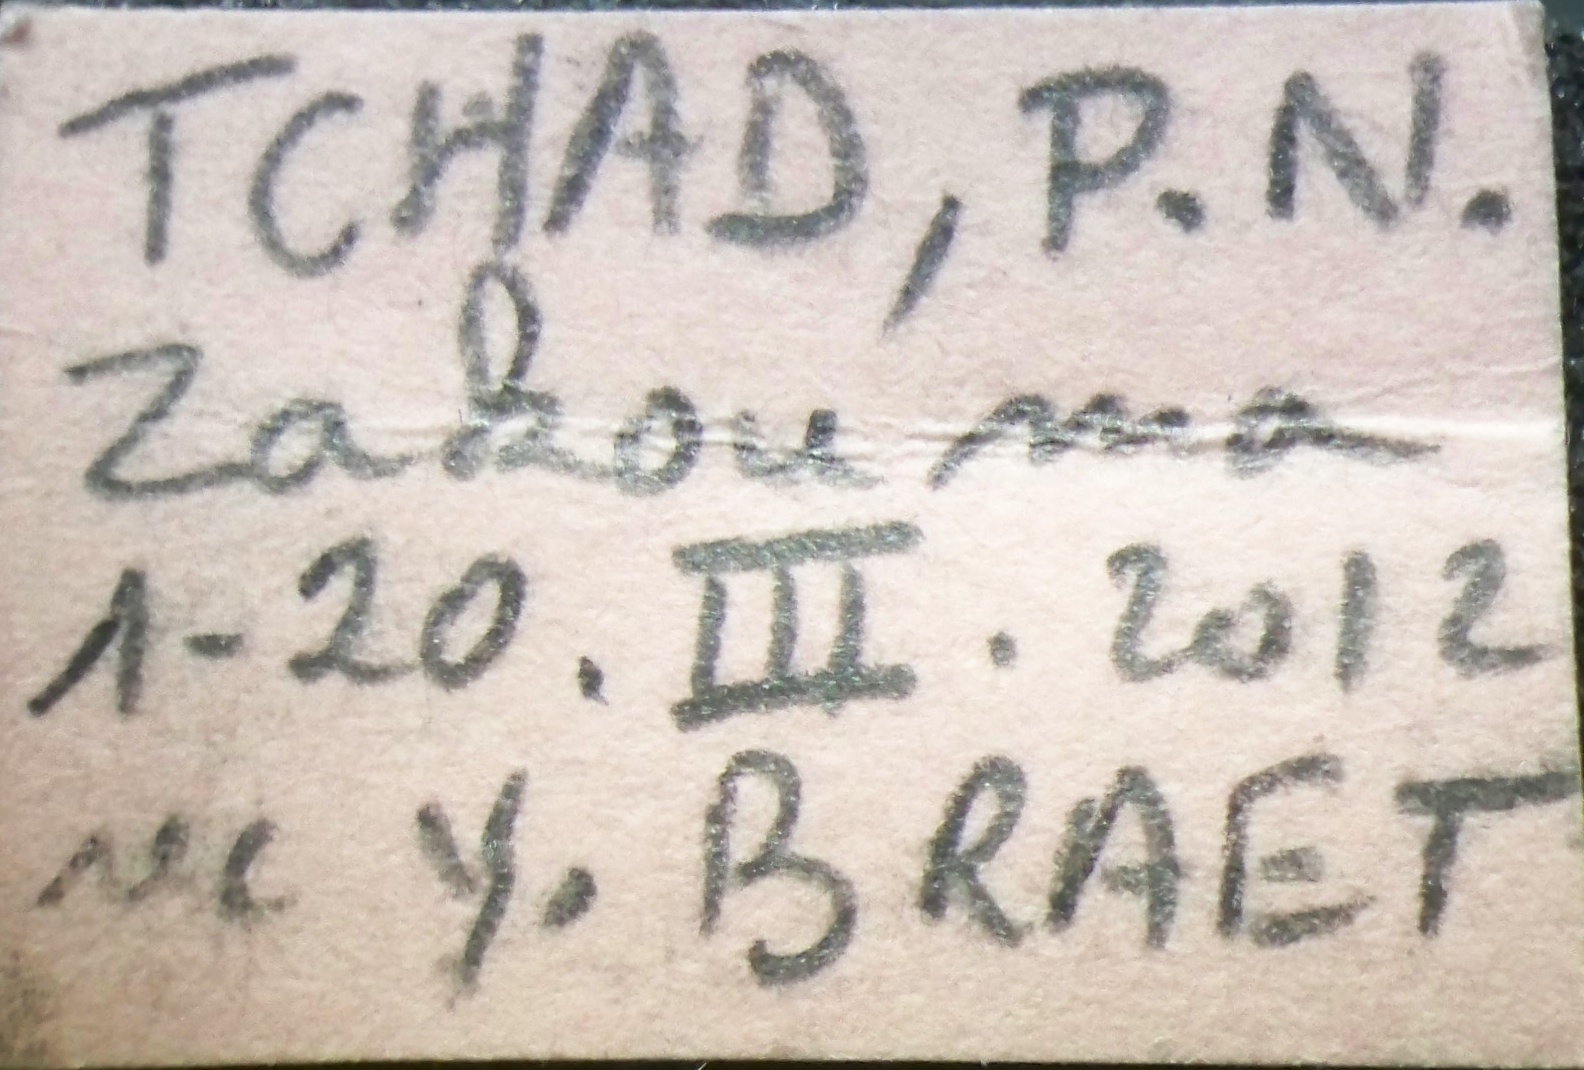 TCHAD, P.N.
Zakouma
1-20.III.2012
Y. BRAET